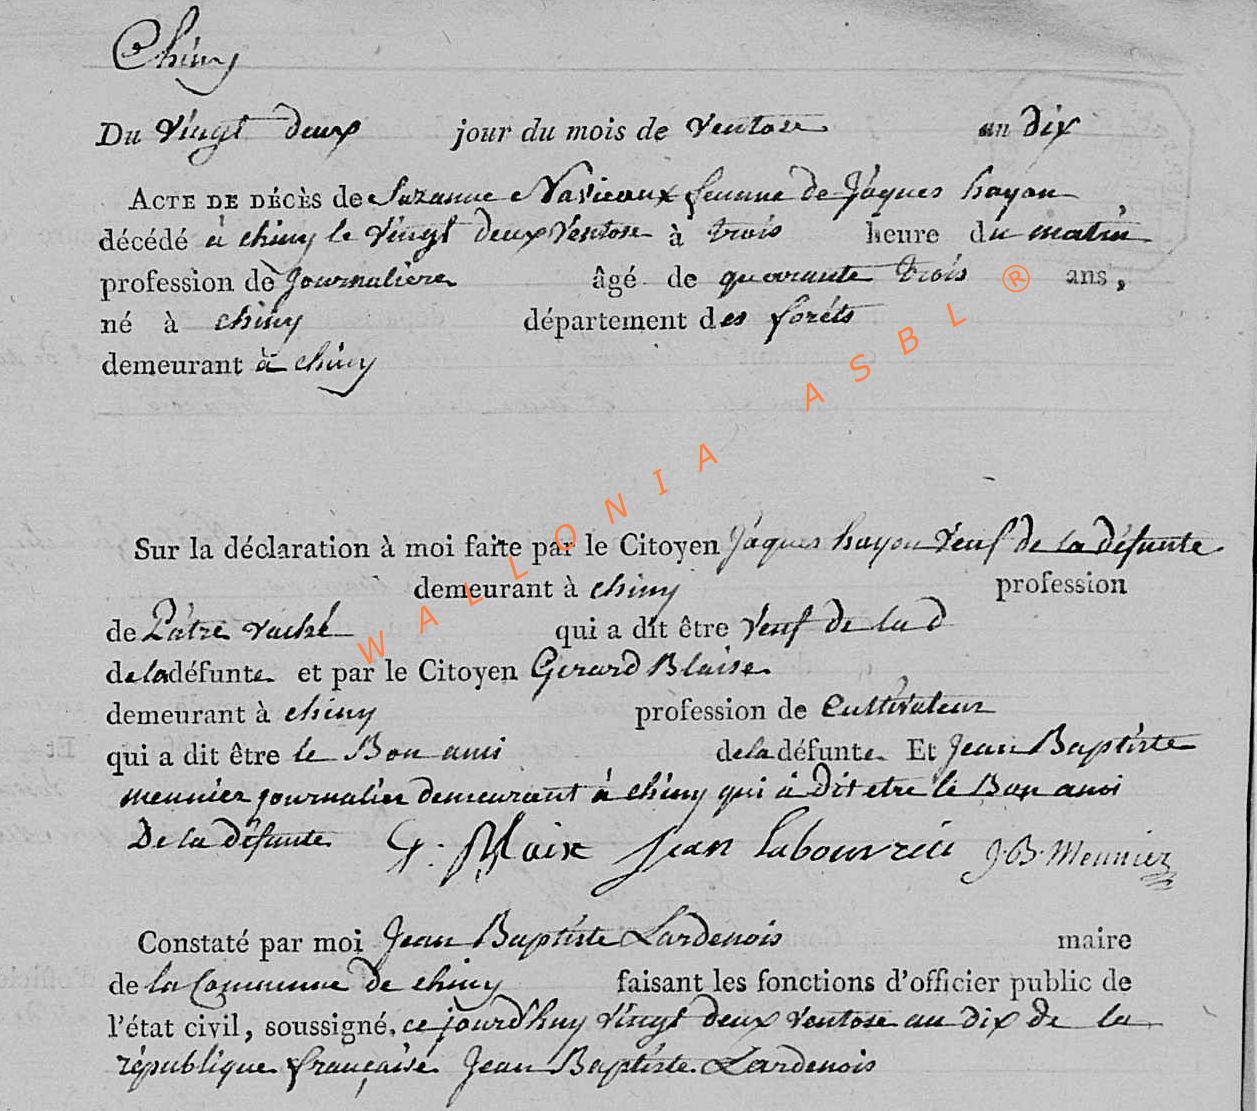 Chiny
Du vingt deux jour du mois de ventose an dix
ACTE DE DÉCÈS de Suzanne Navieaux femme de Jáques hayon
décédé à chiny le vingt deux ventose à trois heure du matin,
profession de Journaliere âgé de quarante trois ans,
né à chiny département des forêts
demeurant à chiny
Sur la déclaration à moi faite par le Citoyen Jáques hayon veuf de la défunte
demeurant à chiny profession
de Pâtre vaché qui a dit être veuf de la d
de la défunte et par le Citoyen Gerard Blaise
demeurant à chiny profession de Cultivateur
qui a dit être le Bon ami de la défunte. Et Jean Baptiste
meunier journalier demeurant à chiny qui à Dit etre le Bon ami
De la défunte G. Blaise Jean Labouverie J.B. Meunier
Constaté par moi Jean Baptiste Lardenois maire
de la Commune de chiny faisant les fonctions d'officier public de
l'état civil, soussigné, ce jourd'huy vingt deux ventose an dix de la
république française Jean Baptiste Lardenois
WALLONIA ASBL ®